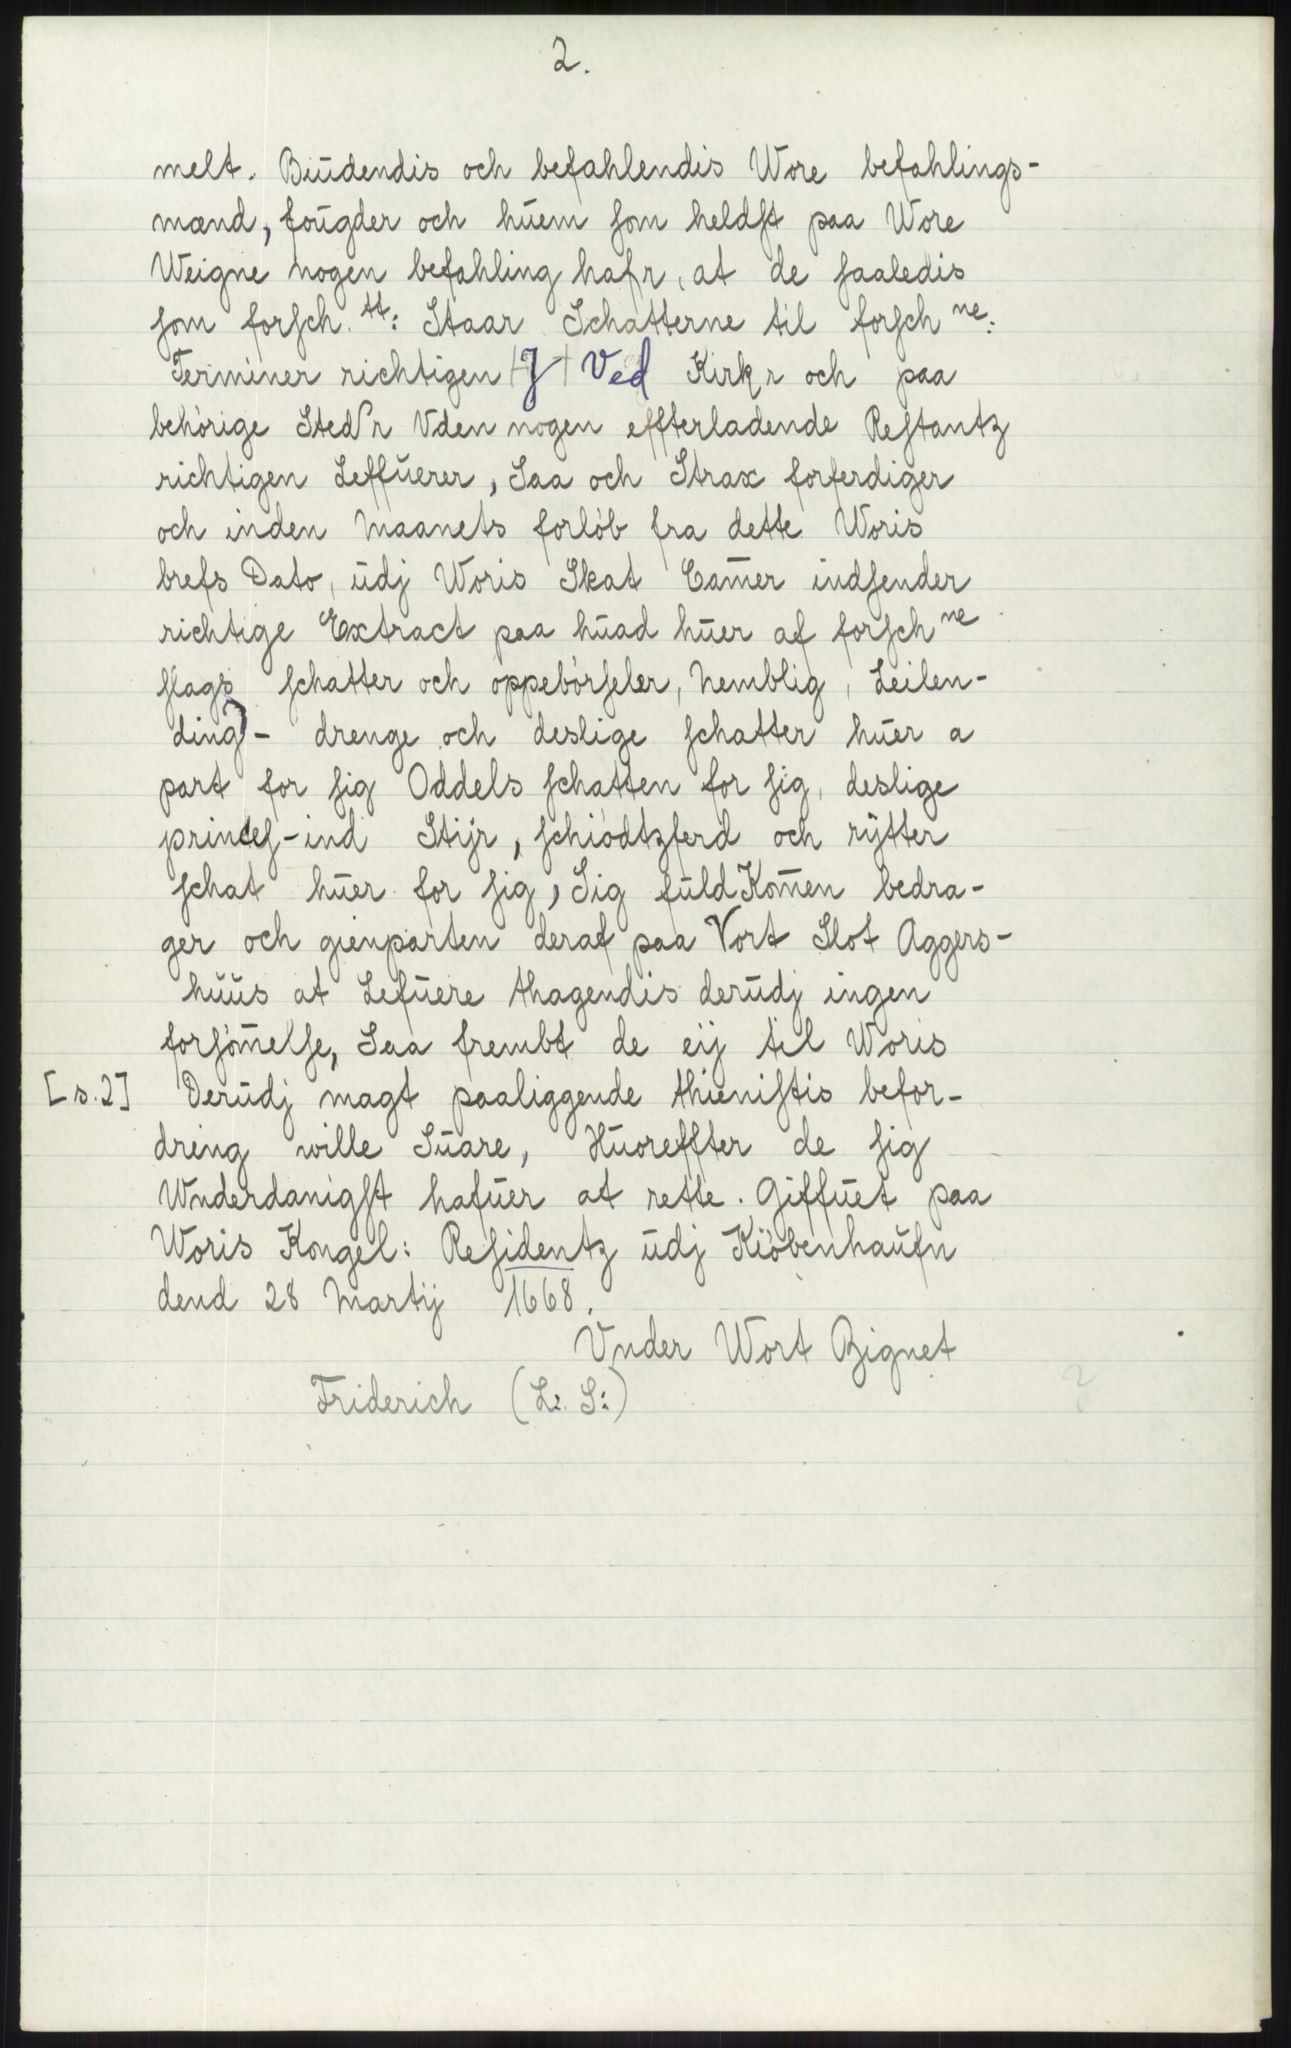 2.
melt. Biudendis och befahlendis Wore befahlings-
mænd, fougder och huem som heldst paa Wore
Weigne nogen befahling hafr, at de saaledis
som forsch tt: Staar Schatterne til forsch ne:
Terminer richtigen J Ved Kirkr och paa
behörige Stedr Vden nogen effterladende Restantz
richtigen Leffuerer, Saa och Strax forferdiger
och inden Maanets forlöb fra dette Woris
brefs Dato, udj Woris Skat Camer indsender
richtige Extract paa huad huer af forsch ne
slags schatter och oppebörseler, Nemblig, Leilen-
ding - drenge och deslige schatter huer a
part for sig Oddels schatten for sig, deslige
princes-ind Stijr, schiödtzferd och rytter
schat huer for sig, Sig fuldKomen bedra-
ger och gienparten deraf paa Vort Slot Aggers-
huus at Lefuere thagendis derudj ingen
forsömelse, Saa frembt de eij til Woris
[s.2] Derudj magt paaliggende thienistis befor-
dring wille Suare, Huoreffter de sig
Wnderdanigst hafuer at rette. Giffuet paa
Woris Kongel: Residentz udj Kiöbenhaufn
dend 28 Martij 1668.
Vnder Wort Zignet
Friderich (L: S:)